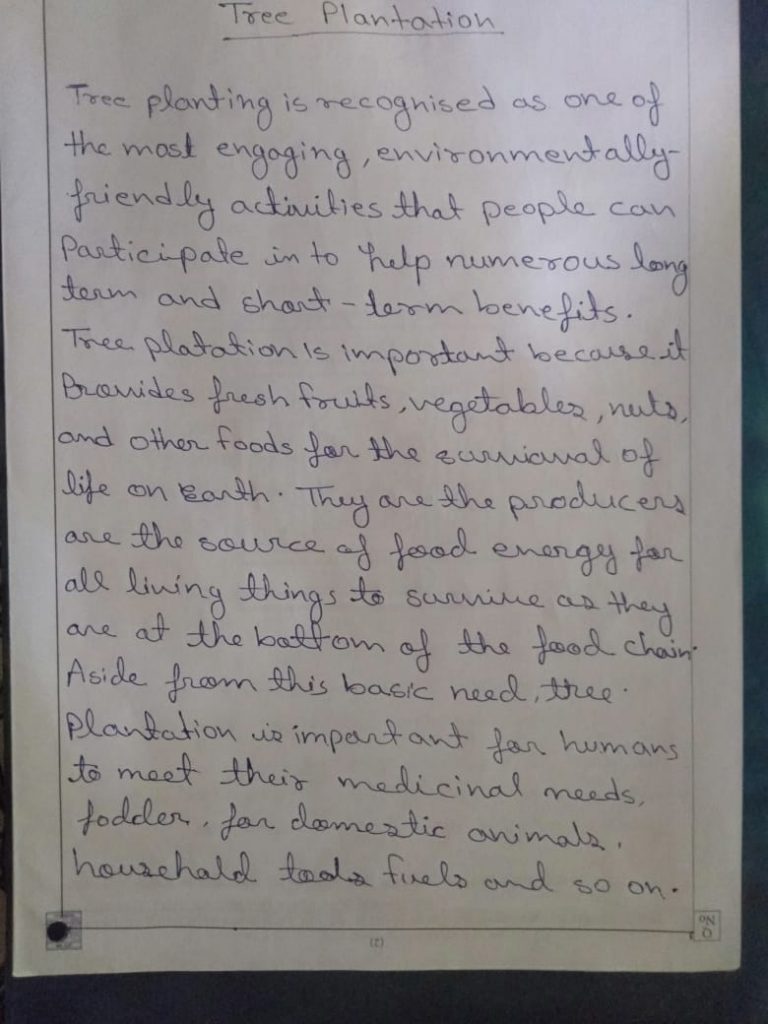 Tree Plantation
Tree planting is recognised as one of
the most engaging, environmentally-
friendly activities that people can
Participate in to help numerous long
term and short-term benefits.
Tree platation Is important because it
Provides fresh fruits, vegetables, nuts,
and other foods for the survival of
life on Earth. They are the producers
are the source of food energy for
all living things to survive as they
are at the bottom of the food chain.
Aside from this basic need, tree.
Plantation is important for humans
to meet their medicinal needs,
fodder, for domestic animals,
household tools fuels and so on.
(2)